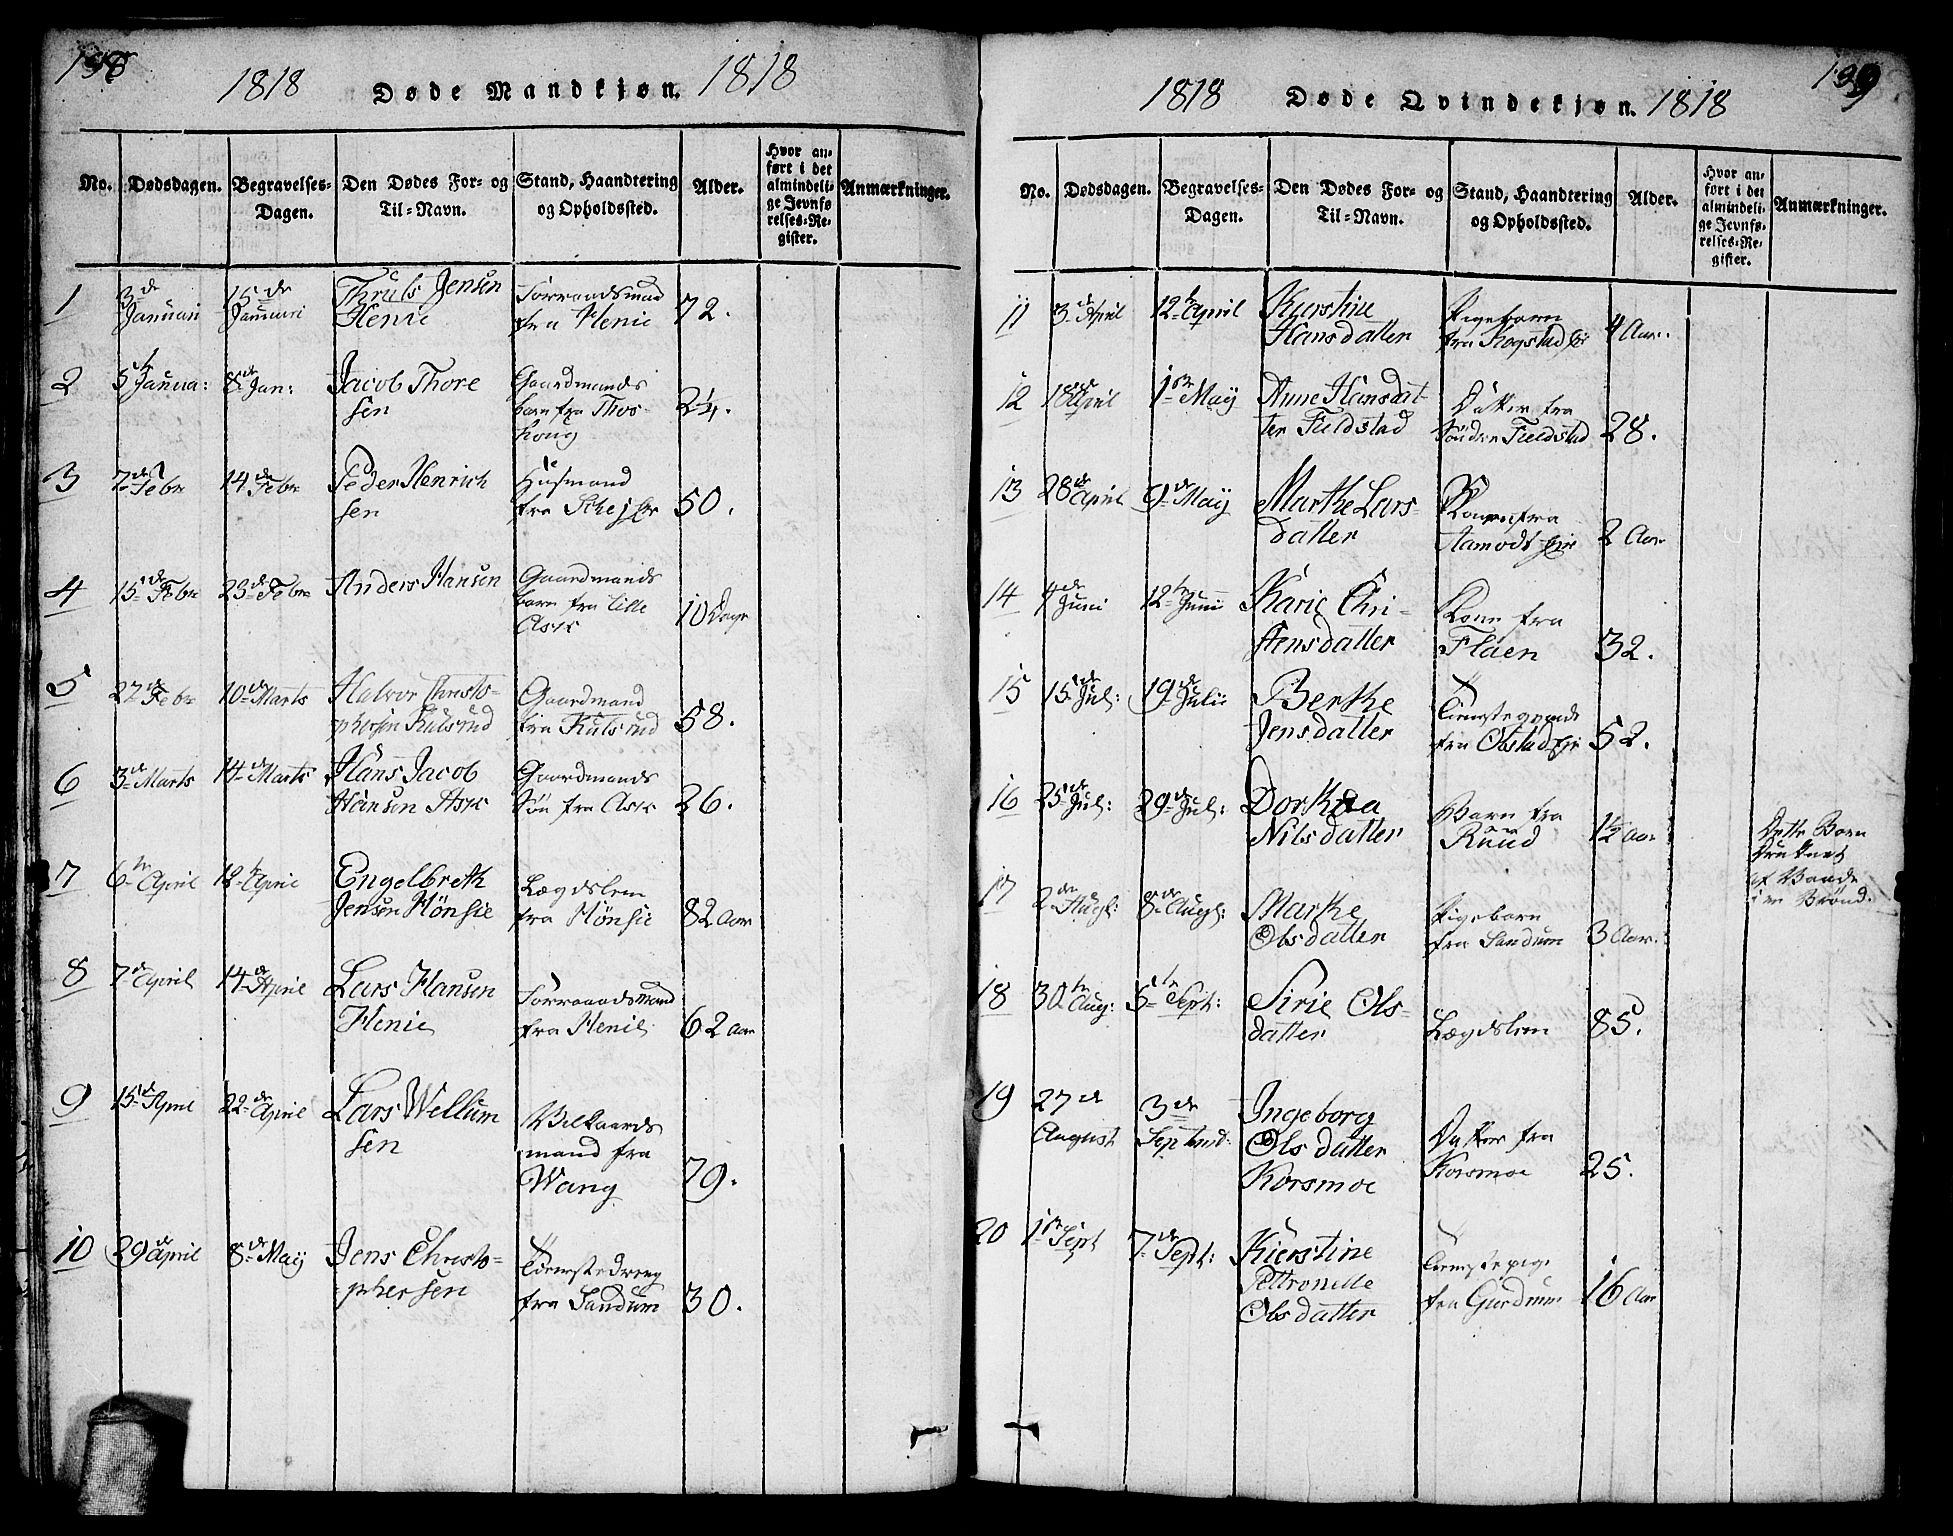 138
1818 Døde Mandkjøn. 1818
No. Dødsdagen. Begravelses-Dagen. Den Dødes For- og Til-Navn. Stand, Haandtering og Opholdssted. Alder. Hvor anført i det almindelige Jevnførelses-Register. Anmærkninger.
1 3de Januari 15de Januari Thruls Jensen Henie fra Henie 72.
2 5te Janua: 8de Jan: Jacob Thoresen Gaardmands barn fra 2¼.
3 7de Febr 14de Febr Peder Henrichsen Huusmand fra 50.
4 15de Febr 23de Febr Anders Hansen Gaardmands barn fra Lille Asx 10 Dage
5 27de Febr 10de Marts Halvor Christophersen Kulsrud Gaardmand fra Kulsrud 58.
6 3de Marts 14de Marts Hans Jacob Hansen Asx Gaardmands Søn fra Asx 26.
7 6te April 12te April Engelbreth Jensen Hönsie Lægdslem fra Hönsie 82 Aar
8 7de April 14de April Lars Hansen Henie fra Henie 62 Aar
9 15de April 22de April Lars Wellumsen mand fra Wang 79.
10 29de April 8de Maÿ Jens Christophersen Tienestedreng fra Sandum 30.
139
1818 Døde Qvindekjøn. 1818
No. Dødsdagen. Begravelses-Dagen. Den Dødes For- og Til-Navn. Stand, Haandtering og Opholdssted. Alder. Hvor anført i det almindelige Jevnførelses-Register. Anmærkninger.
11 3de April 12te April Kierstine Hansdatter Pigebarn fra Kogstad eie 4 Aar.
12 18de April 1ste Maÿ Anne Hansdatter Fieldstad Datter fra Söndre Fieldstad 28.
13 28de April 9de Maÿ Marthe Larsdatter fra Aamodt eie 2 Aar
14 4de Juni 12te Junii Karie Christensdatter Kone fra Flaen 32.
15 15de Jul: 19de Julii Berthe Jensdatter fra Obstad eie 52.
16 25de Jul: 29de Jul: Dorthea Nilsdatter Barn fra Ruud 1½ Aar Dette Barn Druknet af Vaade i en Brönd.
17 2den Augst: 8de Augst: Marthe Olsdatter Pigebarn fra Sandum 3 Aar.
18 30te Aug: 5te Sept: Sirie Olsdatter Lægdslem 85.
19 27de August 3de Septemb: Ingeborg Olsdatter Korsmoe Datter fra Korsmoe 25.
20 1ste Sept 7de Sept: Kierstine Pettronelle Olsdatter Tienestepige fra Gierdrum 16 Aar